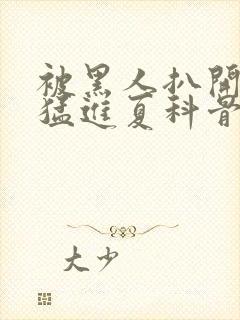 被黑人扒開
猛進夏科骨
大少